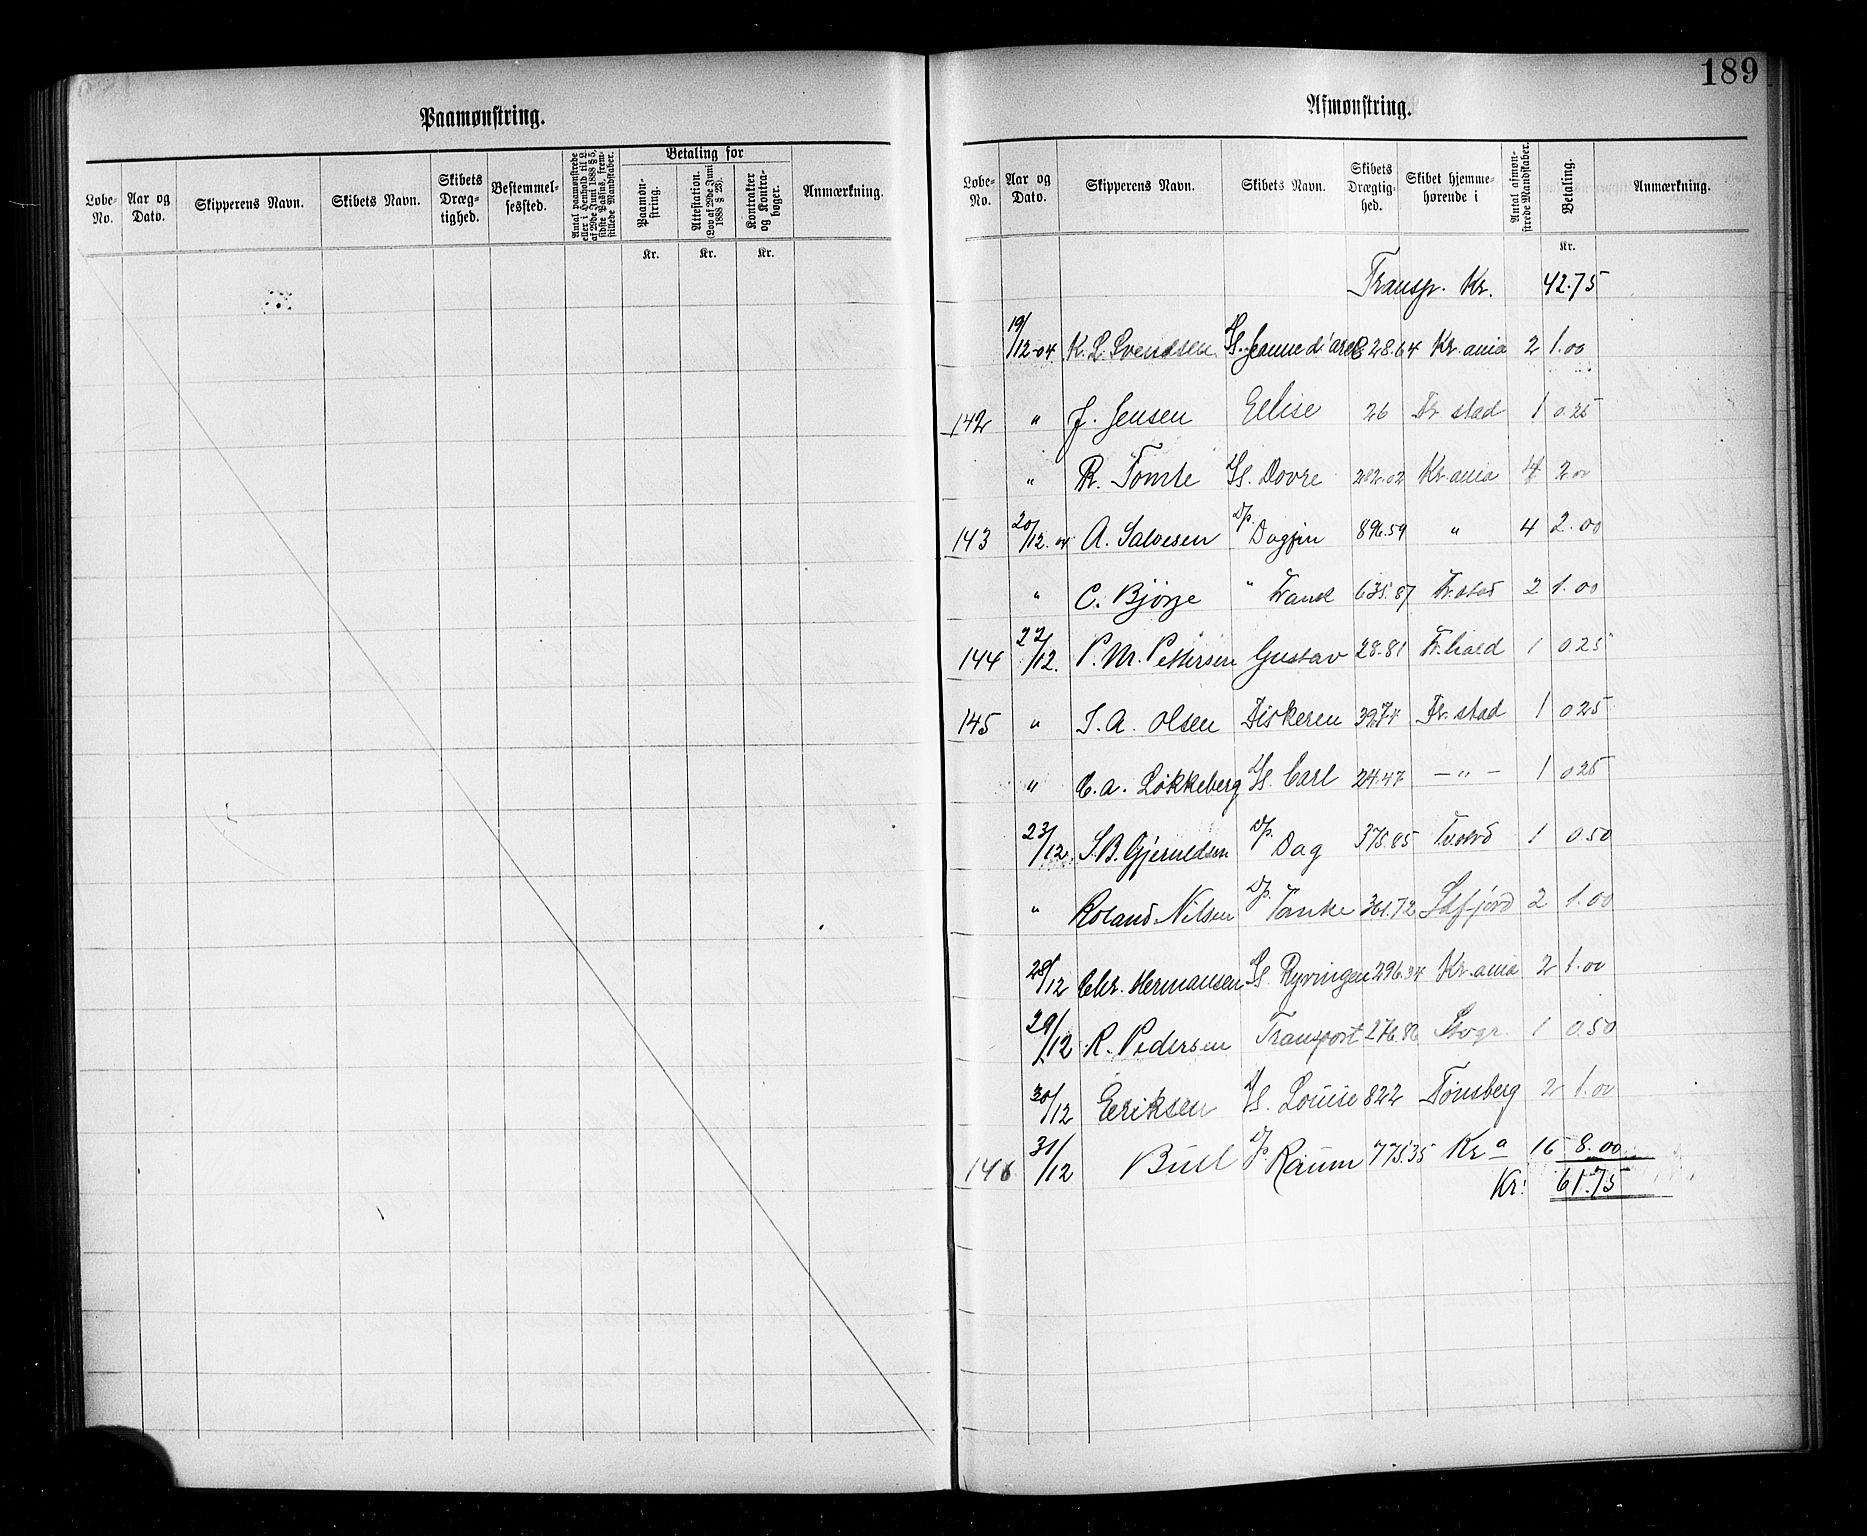 189
Paamønstring.
Løbe-No. Aar og Dato. Skipperens Navn. Skibets Navn. Skibets Dræg-tighed. Bestemmel-sessted. Antal paamønstrede eller i Henhold til L. af 29de Juni 1888 § 5, sidste Passus, frem-stillede Mandskaber. Betaling for Paamøn-string. Attestation. (Lov af 29de Juni 1888 § 23). Kontrakter og Kontra-bøger. Anmærkning.
Kr. Kr. Kr.
Afmønstring.
Løbe-No. Aar og Dato. Skipperens Navn. Skibets Navn. Skibets Drægtig-hed. Skibet hjemme-hørende i Antal afmøn-strede Mandskaber. Betaling. Anmærkning.
Kr.
Transp. Kr. 42.75
19/12-04 K. L. Svendsen S/S. Jeanne d'arc 828.64 Kr.ania 2 1.00
142 " J. Jensen Ellise 26 Fr.stad 1 0.25
" R. Tomte S/S. Dovre 282.02 Kr.ania 4 2.00
143 20/12.04 A. Salvesen D/p. Dagfin 896.59 " 4 2.00
" C. Bjørge " Frank 635.87 Fr.stad 2 1.00
144 22/12. P. M. Pettersen Gustav 28.81 Fr.hald 1 0.25
145 " S. A. Olsen Fiskeren Fr.stad 1 025
" C. A. Løkkeberg S/S. Carl 24.47 – " – 1 025
23/12. S. B. Gjeruldsen D/p. Dag 375.85 1 0.50
" Roland Nilsen D/p. Tanke 361.72 2 1.00
28/12 Chr. Hermansen S/S. Ryvingen 296.34 Kr.ania 2 1.00
29/12 R. Pedersen Transport 276.86 1 0.50
30/12 Eriksen S/S. Louise 822 Tønsberg 2 1.00
146 31/12 Bull D/p. Raum 775.35 Kra 16 8.00
Kr: 61.75